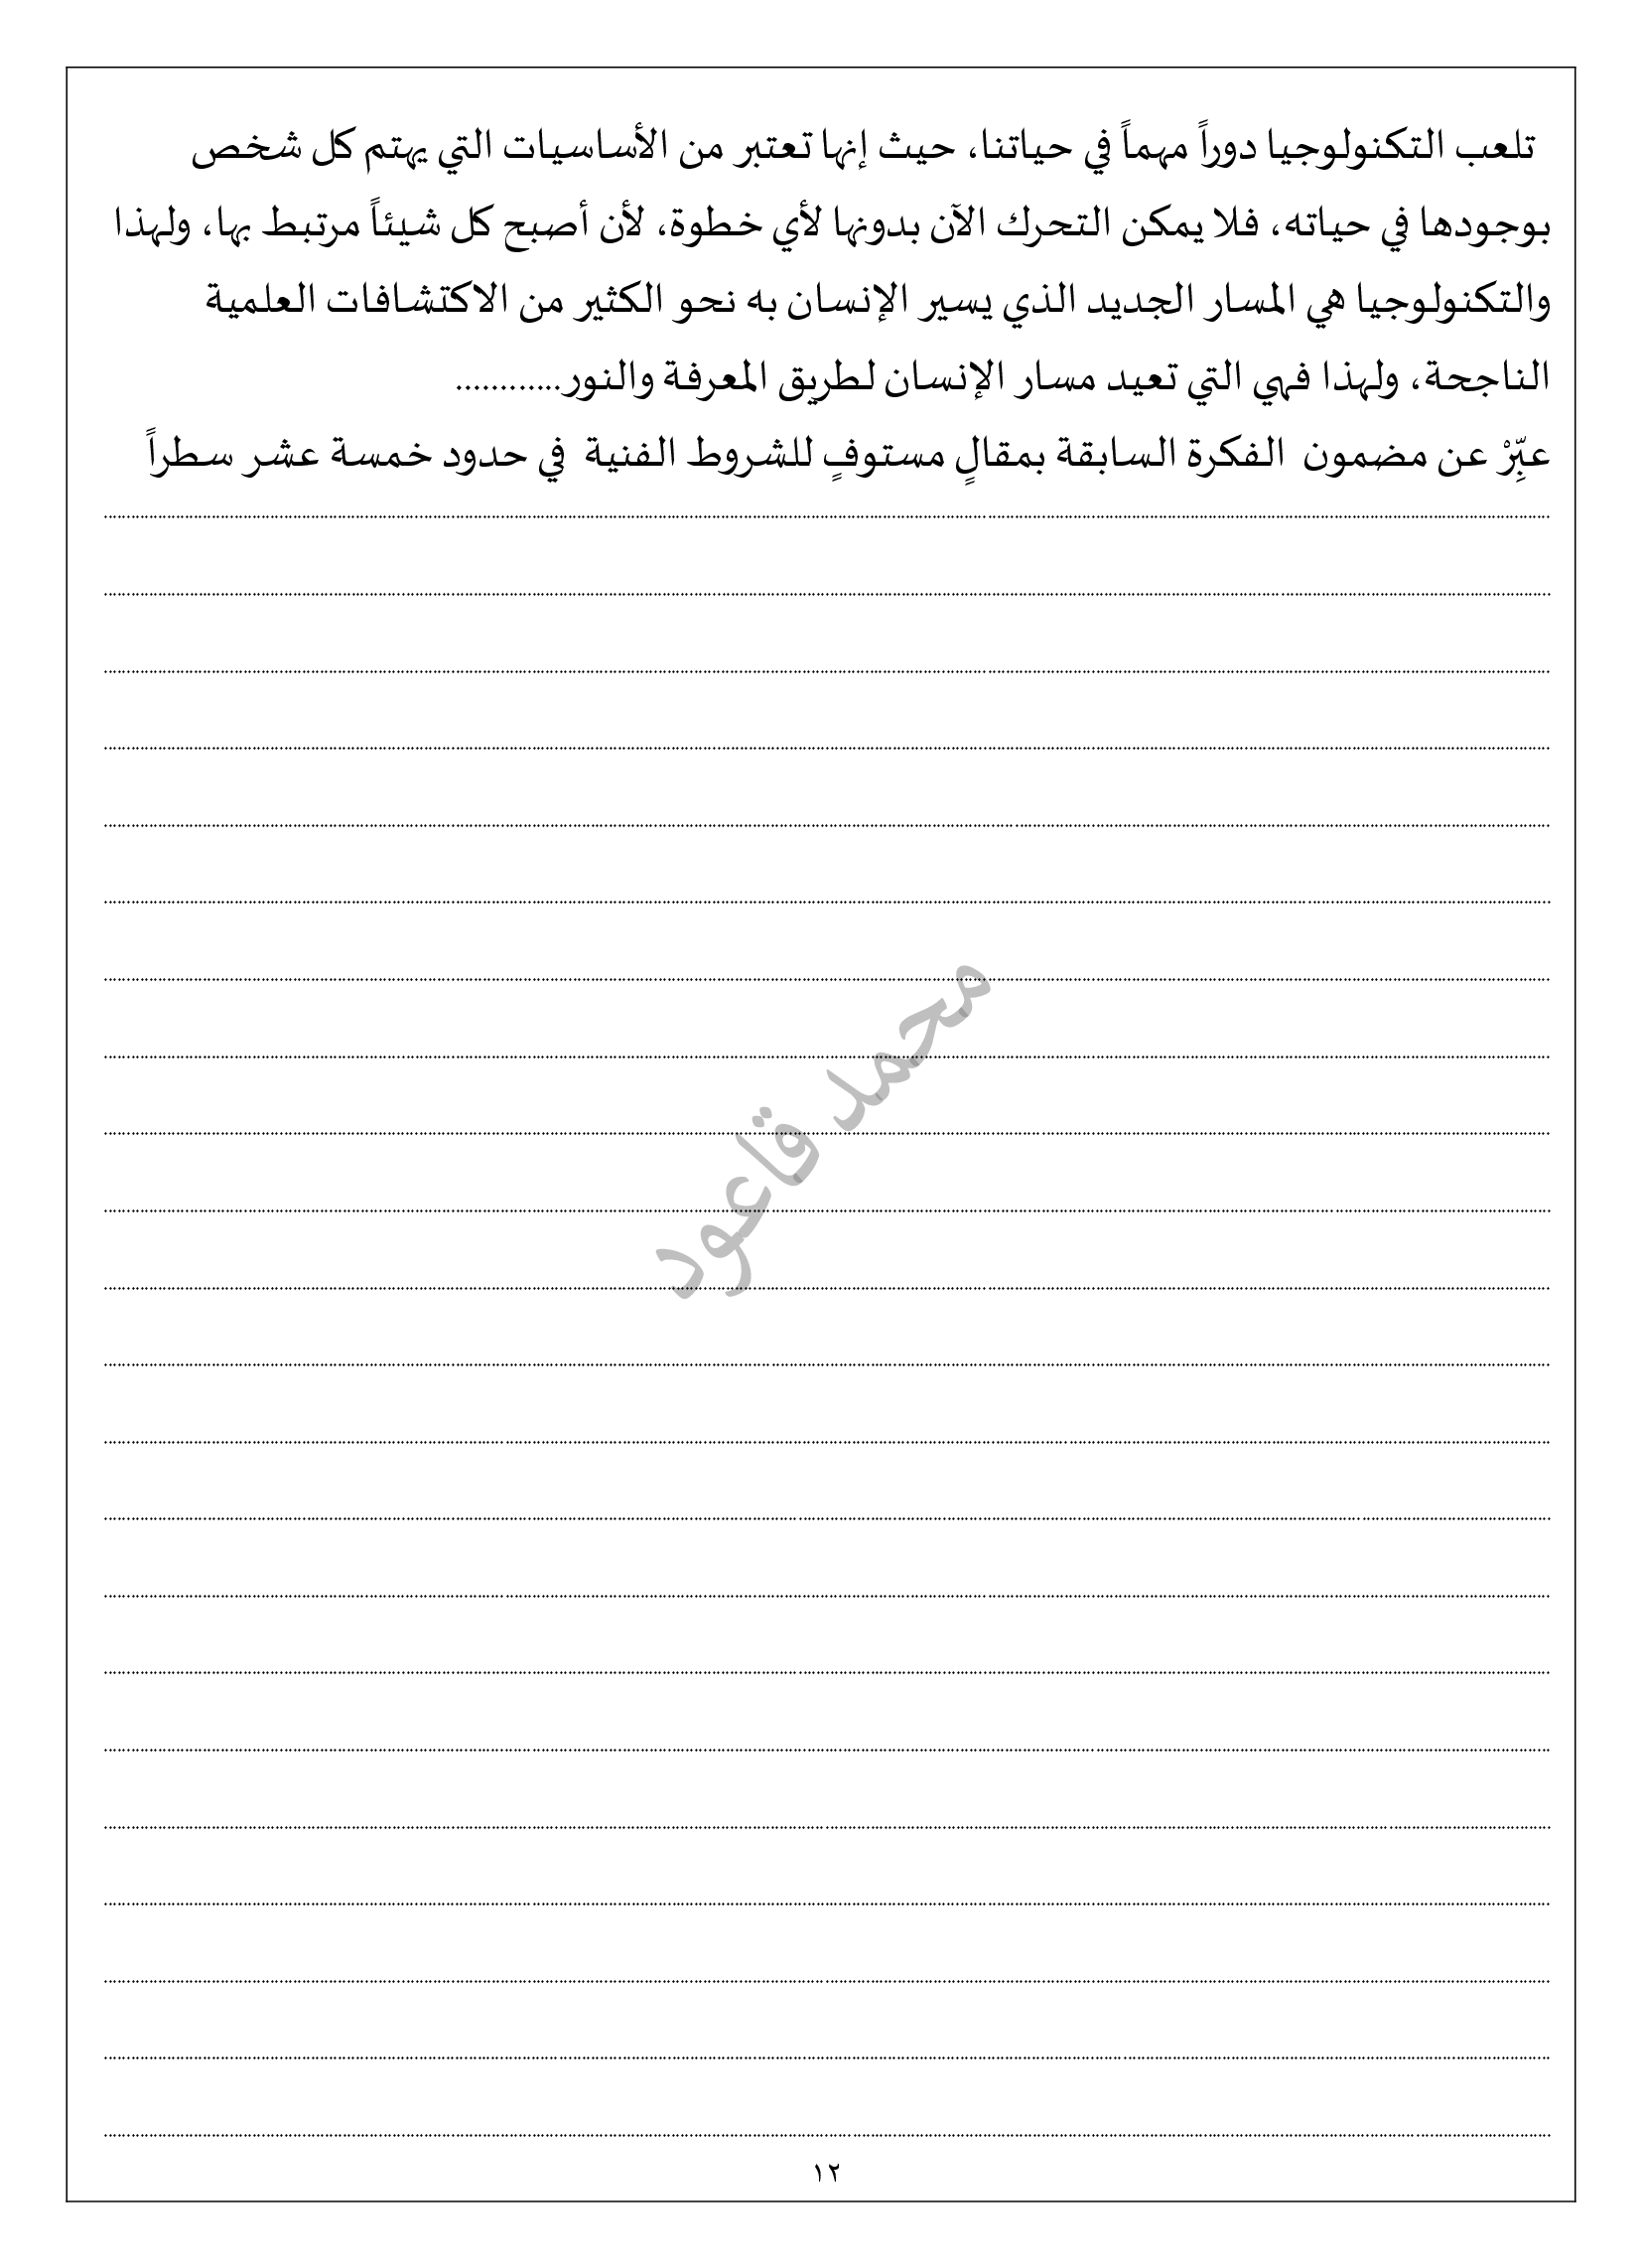 تلعب التكنولوجيا دوراً مهماً في حياتنا، حيث إنها تعتبر من الأساسيات التي يهتم كل شخص
بوجودها في حياته، فلا يمكن التحرك الآن بدونها لأي خطوة، لأن أصبح كل شيئاً مرتبط بها، ولهذا
والتكنولوجيا هي المسار الجديد الذي يسير الإنسان به نحو الكثير من الاكتشافات العلمية
الناجحة، ولهذا فهي التي تعيد مسار الإنسان لطريق المعرفة والنور............
عبِّرْ عن مضمون الفكرة السابقة بمقالٍ مستوفٍ للشروط الفنية في حدود خمسة عشر سطراً
محمد قاعود
١٢